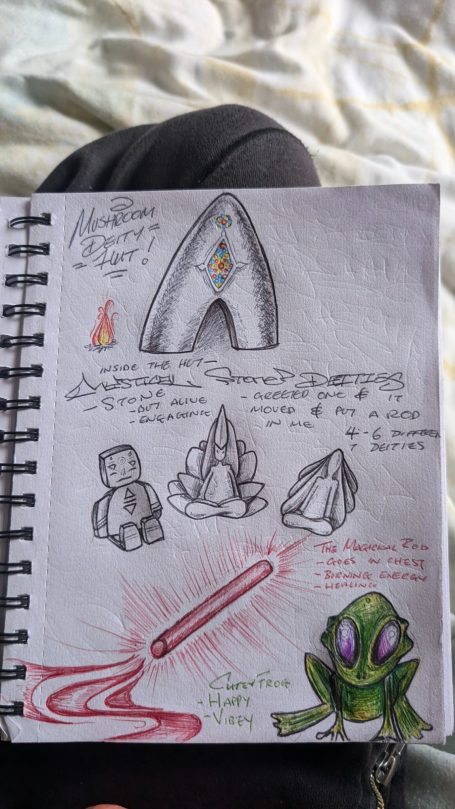 MUSHROOM
DEITY
HUT!
INSIDE THE HUT-
MYSTICAL STONED DEITIES
- STONE
- BUT ALIVE
- ENGAGING
- GREETED ONE & IT
MOVED & PUT A ROD
IN ME
4-6 DIFFEREN
T DEITIES
THE MAGICKAL ROD
- GOES IN CHEST
- BURNING ENERGY
- HEALING
CUTEY FROG
- HAPPY
- VIBEY